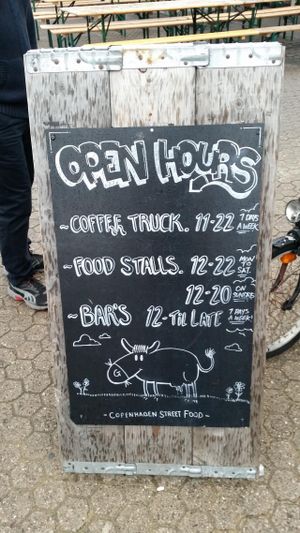 OPEN HOURS
~COFFEE TRUCK. 11-22 7 DAYS A WEEK!
~FOOD STALLS. 12-22 MON TO SAT.
12-20 ON SUNDAYS
~BAR'S 12-Till LATE 7 DAYS A WEEK!
G
- COPENHAGEN STREET FOOD -